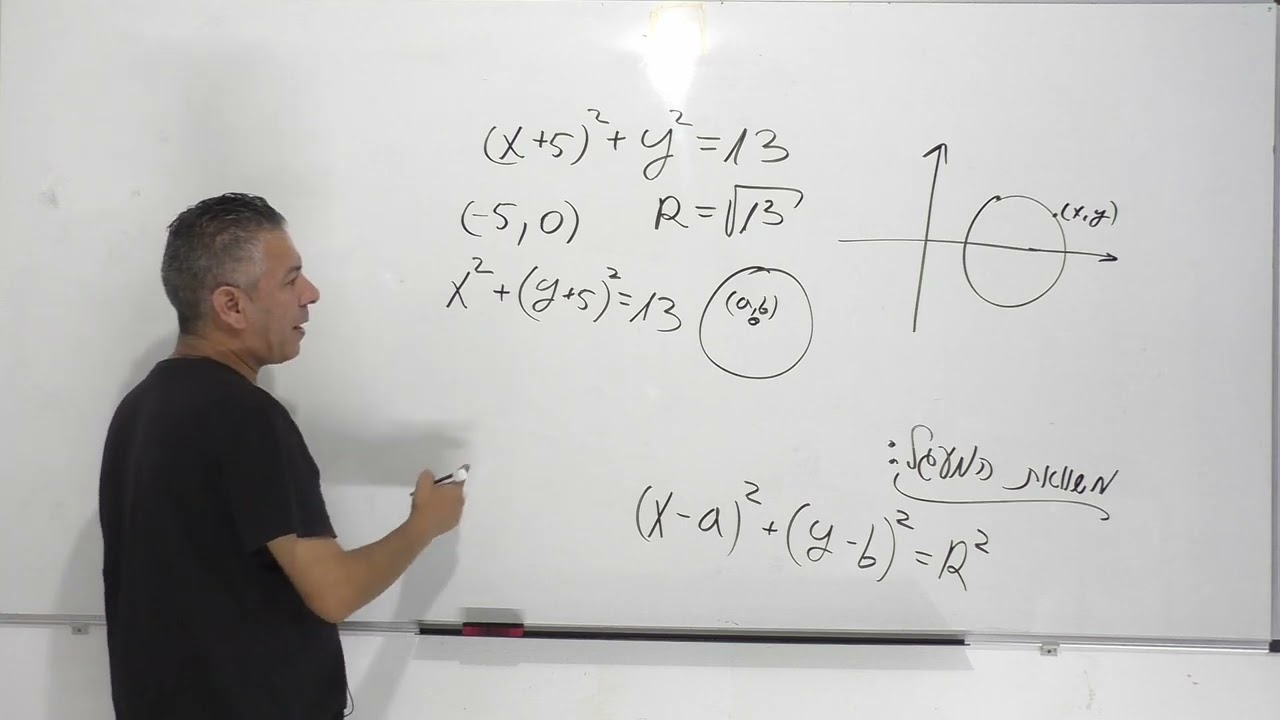 (x+5)² + y² = 13
(-5, 0) R = √13
x² + (y+5)² = 13
(a,b)
(x,y)
משוואת המעגל:
(x-a)² + (y-b)² = R²